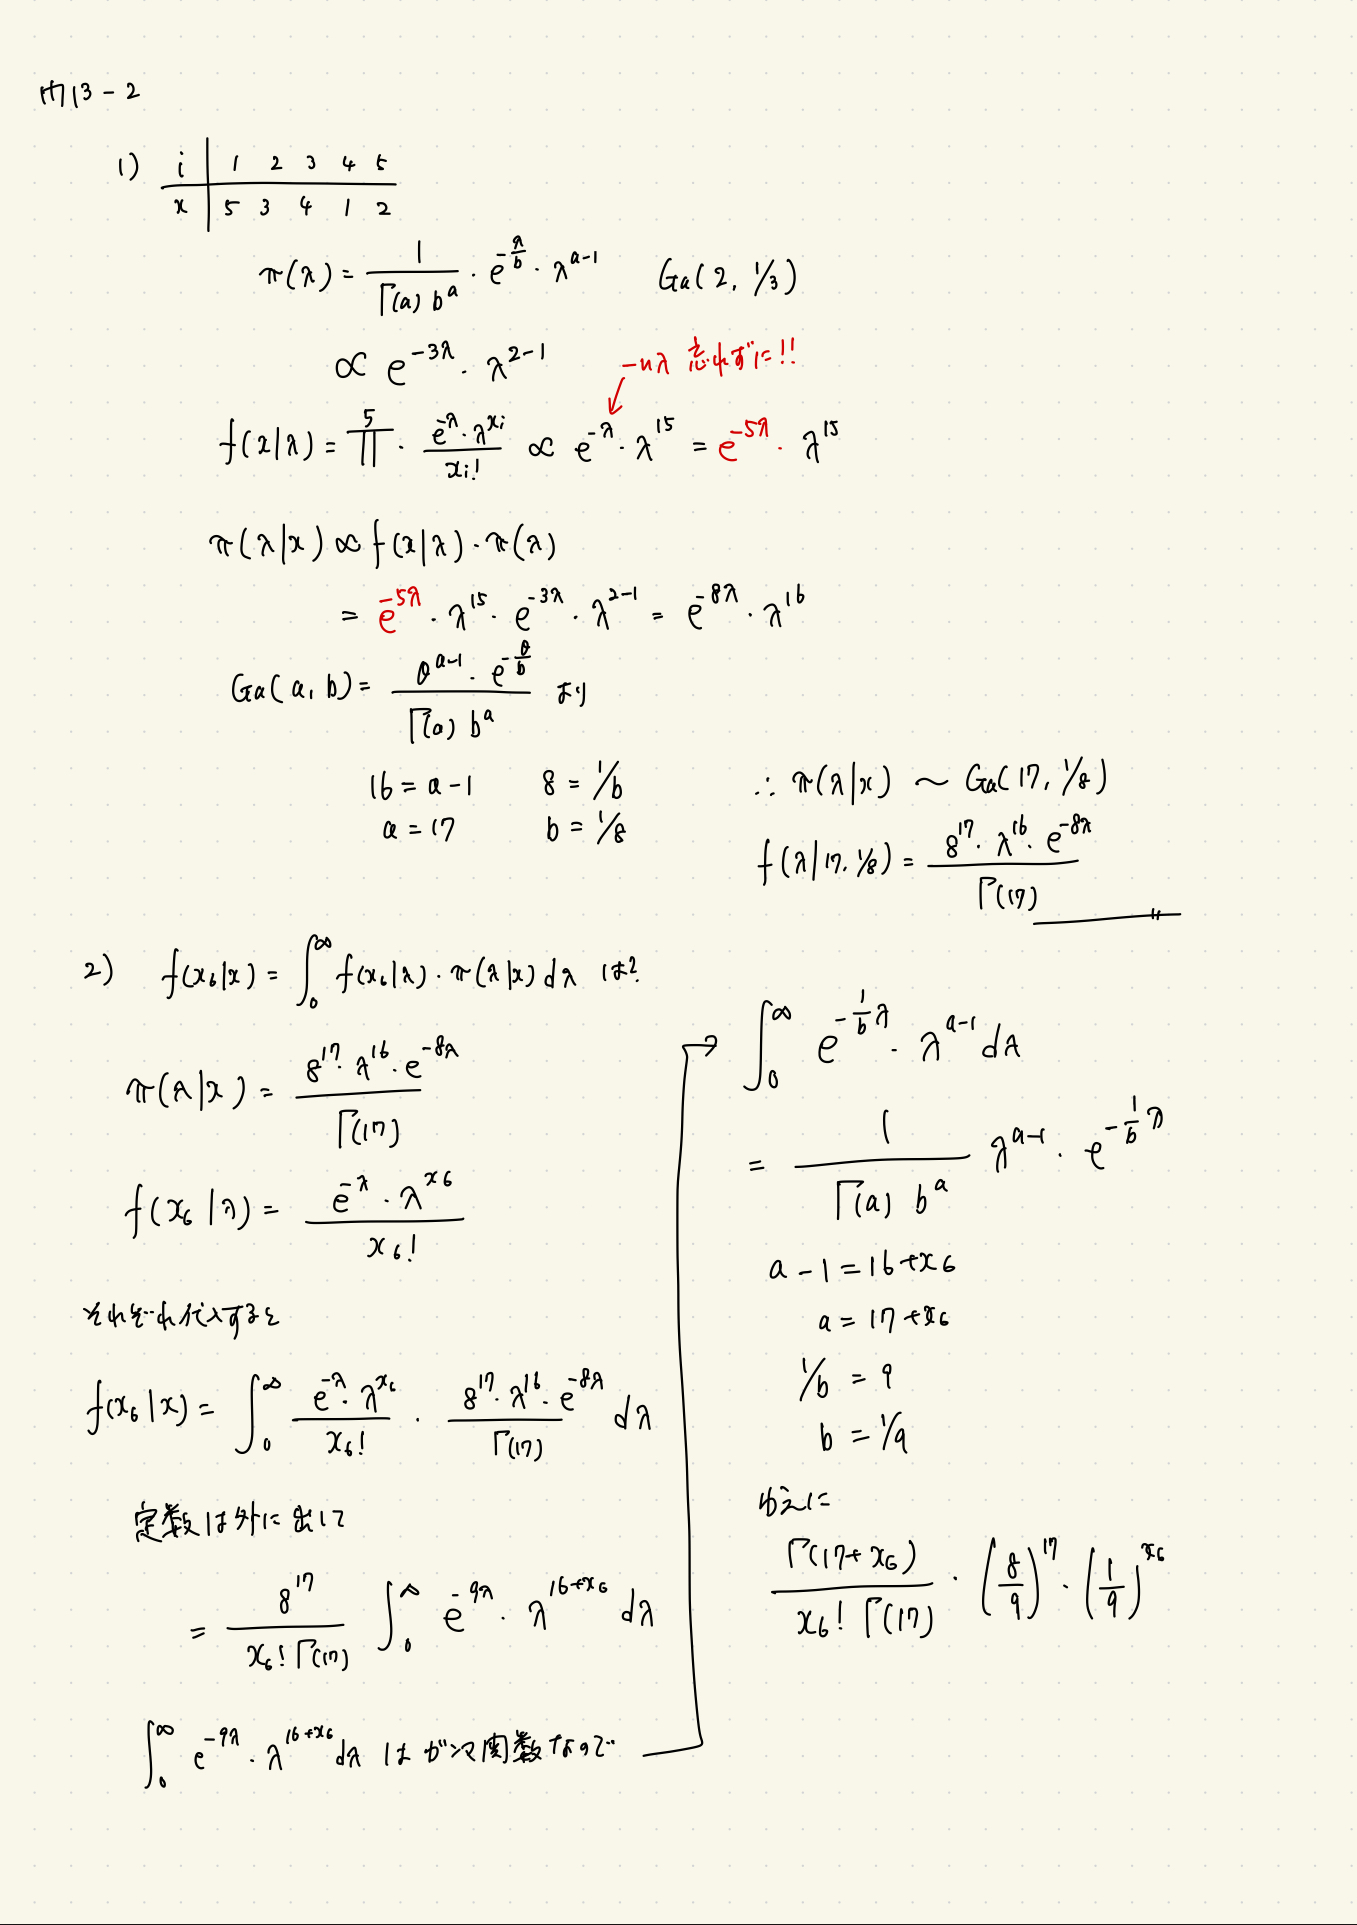 問13-2
1) i | 1 2 3 4 5
x | 5 3 4 1 2
π(λ) = 1/(Γ(a) b^a) · e^{-λ/b} · λ^{a-1} Ga(2, 1/3)
∝ e^{-3λ} · λ^{2-1}
-nλ 忘れずに!!
f(x|λ) = ∏^5 · (e^{-λ} · λ^{x_i})/(x_i!) ∝ e^{-λ} · λ^{15} = e^{-5λ} · λ^{15}
π(λ|x) ∝ f(x|λ) · π(λ)
= e^{-5λ} · λ^{15} · e^{-3λ} · λ^{2-1} = e^{-8λ} · λ^{16}
Ga(a, b) = (θ^{a-1} · e^{-θ/b})/(Γ(a) b^a) より
16 = a-1 8 = 1/b
a = 17 b = 1/8
∴ π(λ|x) ~ Ga(17, 1/8)
f(λ|17, 1/8) = (8^{17} · λ^{16} · e^{-8λ})/Γ(17)
2) f(x_6|x) = ∫_0^∞ f(x_6|λ) · π(λ|x) dλ は?
π(λ|x) = (8^{17} · λ^{16} · e^{-8λ})/Γ(17)
f(x_6|λ) = (e^{-λ} · λ^{x_6})/(x_6!)
それぞれ代入すると
f(x_6|x) = ∫_0^∞ (e^{-λ} · λ^{x_6})/(x_6!) · (8^{17} · λ^{16} · e^{-8λ})/Γ(17) dλ
定数は外に出して
= 8^{17}/(x_6! Γ(17)) ∫_0^∞ e^{-9λ} · λ^{16+x_6} dλ
∫_0^∞ e^{-9λ} · λ^{16+x_6} dλ はガンマ関数なので
→ ∫_0^∞ e^{-(1/b)λ} · λ^{a-1} dλ
= 1/(Γ(a) b^a) λ^{a-1} · e^{-(1/b)λ}
a-1 = 16+x_6
a = 17+x_6
1/b = 9
b = 1/9
ゆえに
Γ(17+x_6)/(x_6! Γ(17)) · (8/9)^{17} · (1/9)^{x_6}